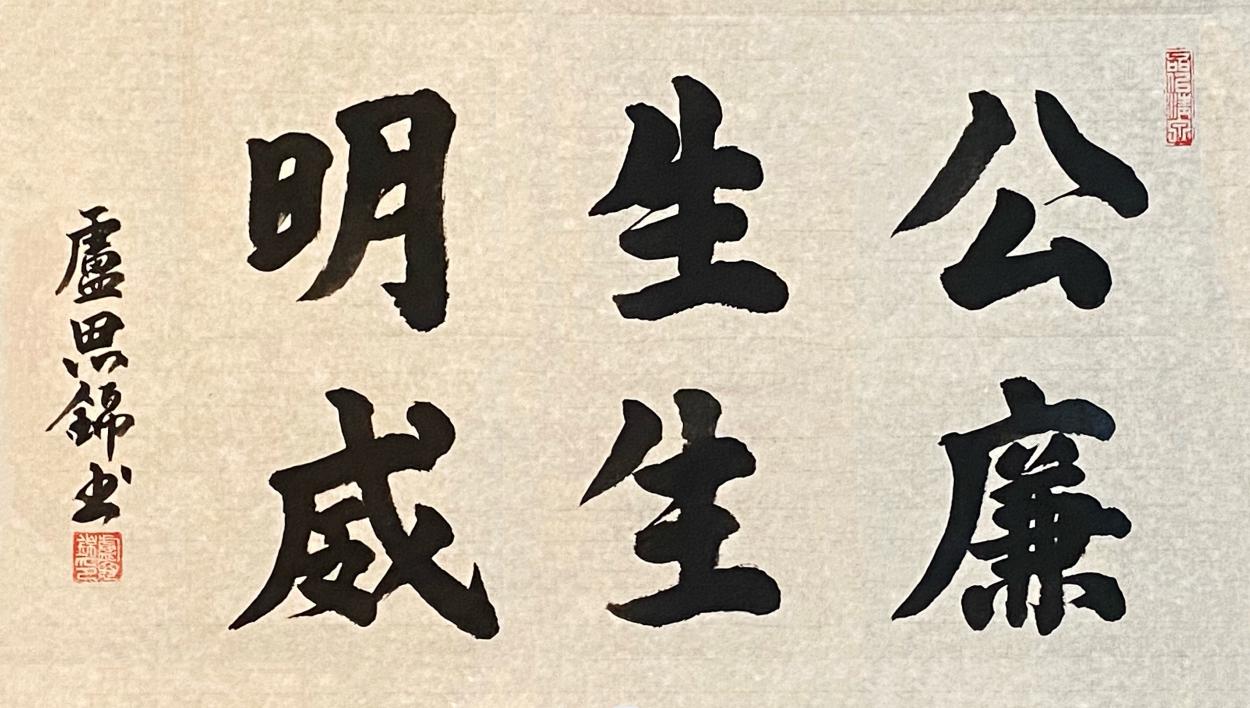 公生明
廉生威
盧思錦书